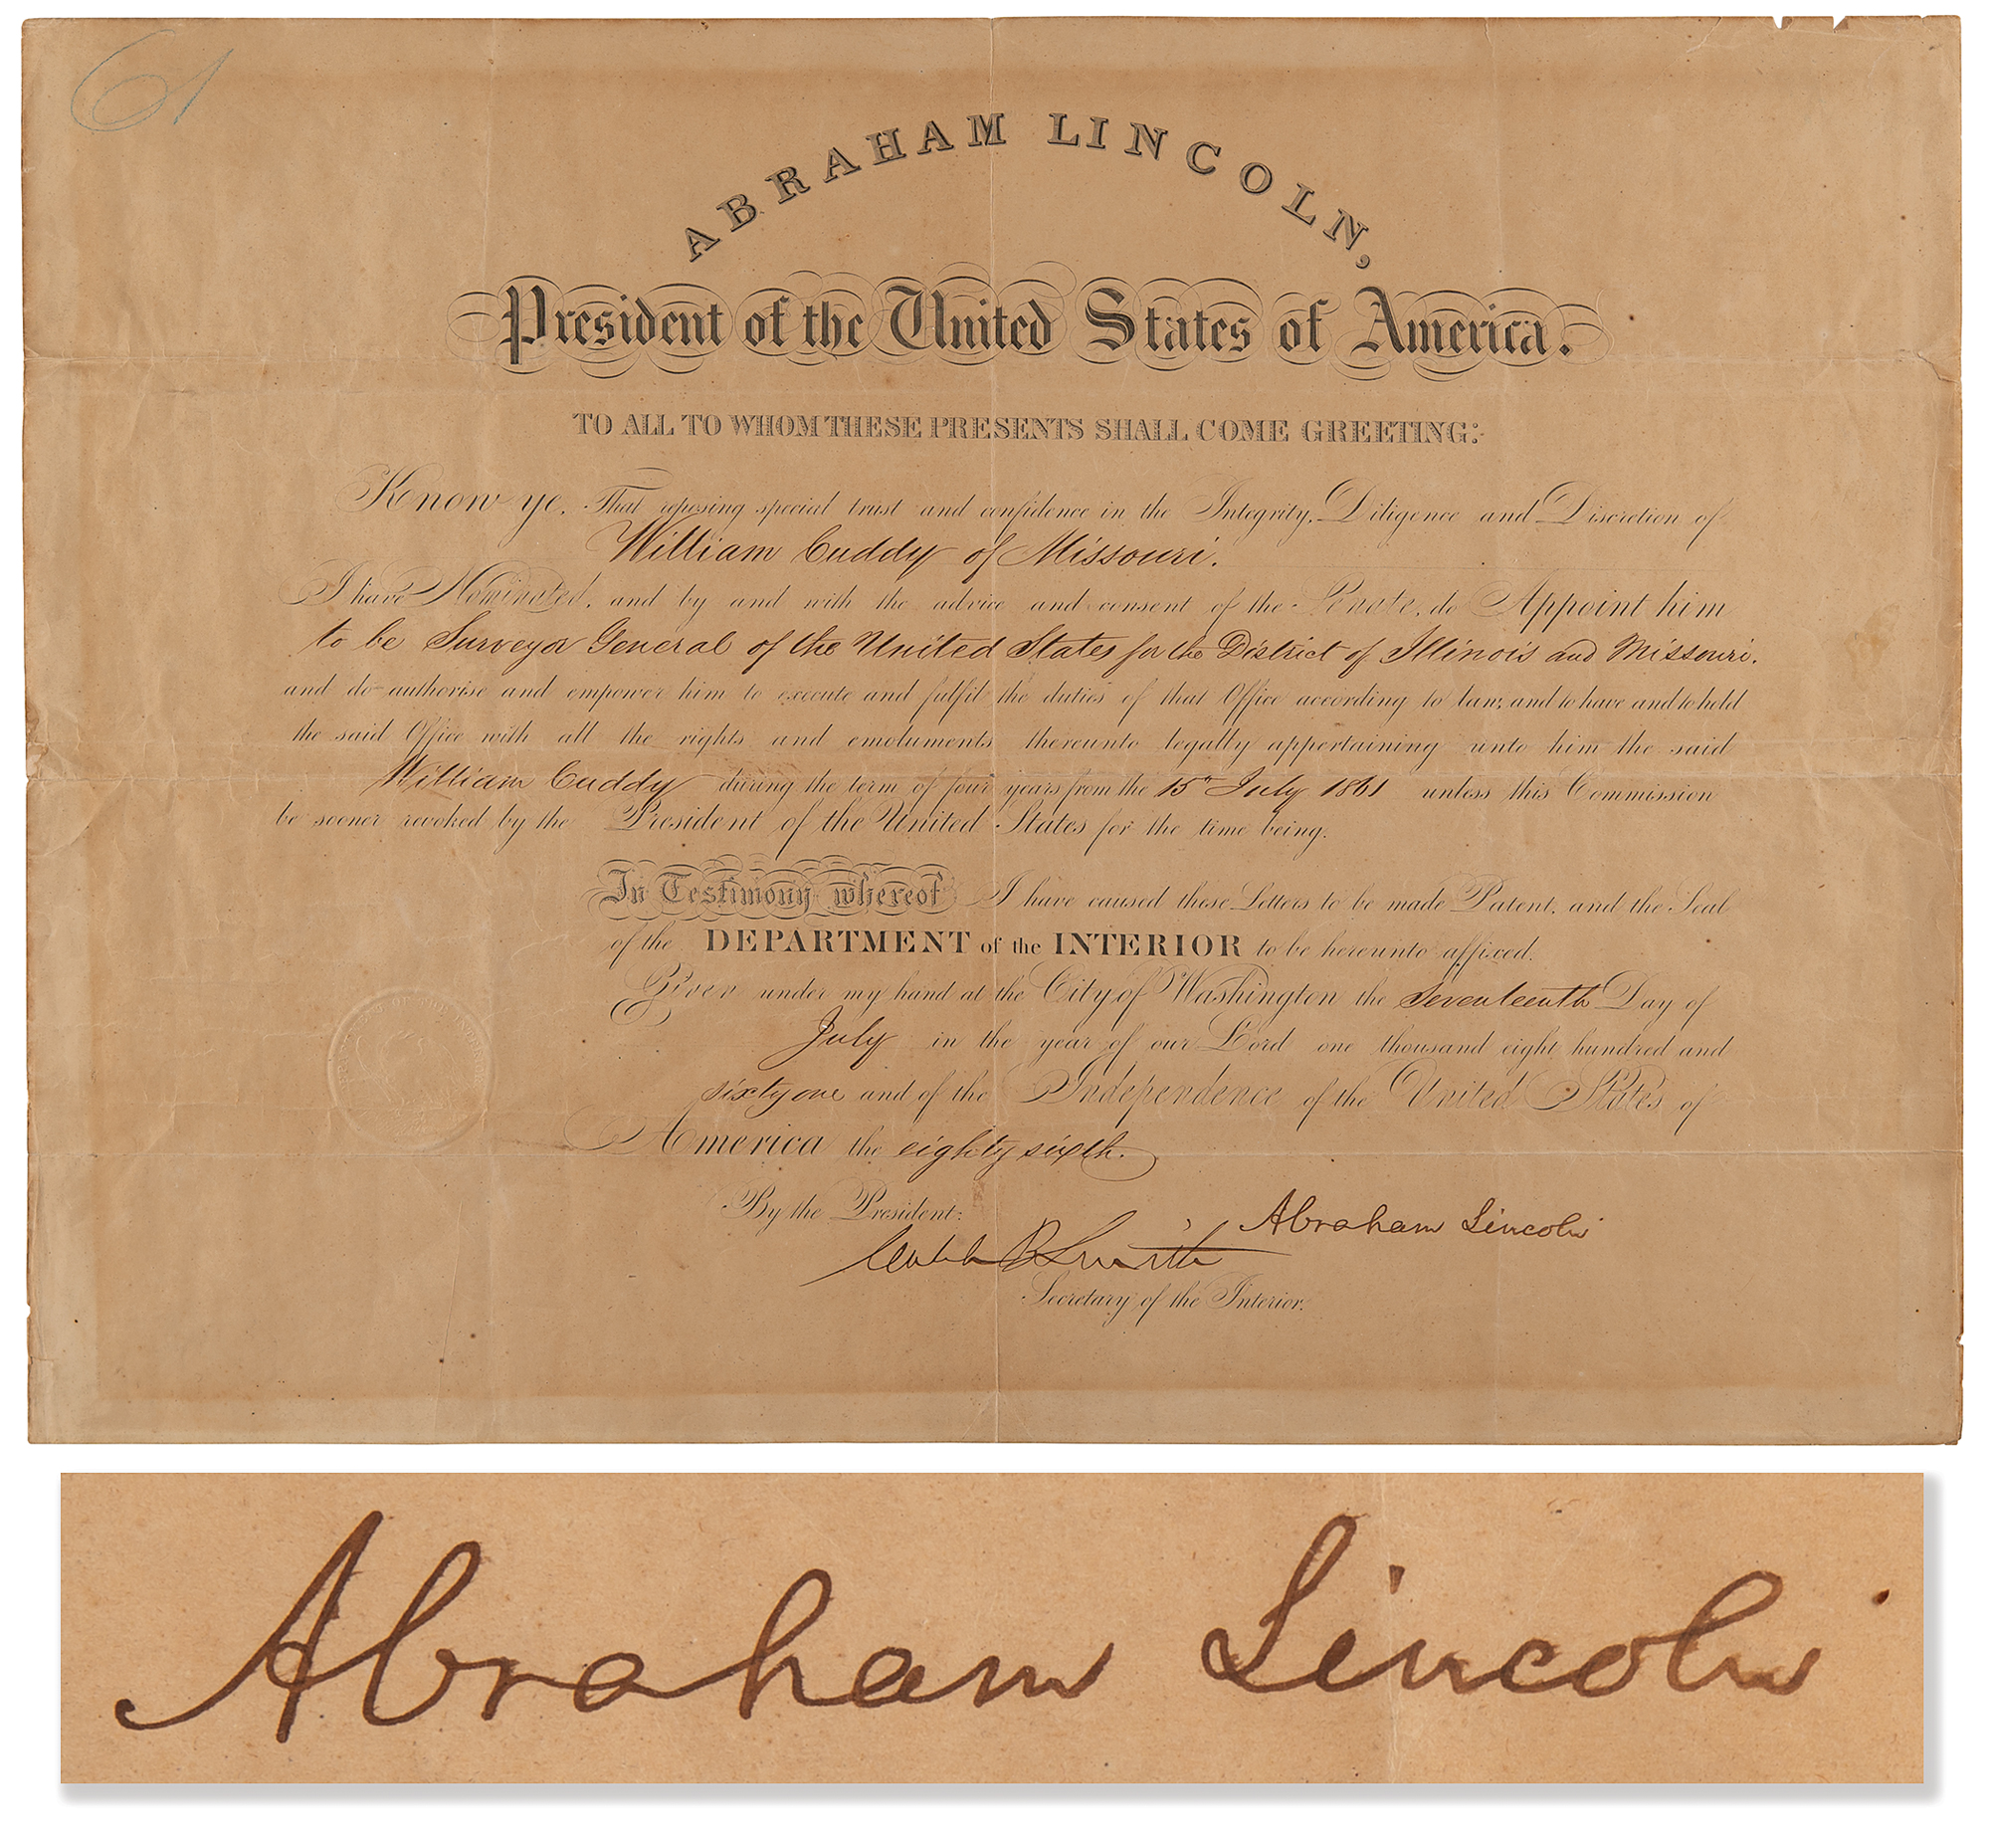 ABRAHAM LINCOLN,
President of the United States of America.
TO ALL TO WHOM THESE PRESENTS SHALL COME GREETING:
Know ye, That reposing special trust and confidence in the Integrity, Diligence and Discretion of
William Cuddy of Missouri.
I have Nominated, and by and with the advice and consent of the Senate, do Appoint him
to be Surveyor General of the United States for the District of Illinois and Missouri.
and do authorise and empower him to execute and fulfil the duties of that Office according to law; and to have and to hold
the said Office with all the rights and emoluments thereunto legally appertaining unto him the said
William Cuddy during the term of four years from the 15th July 1861 unless this Commission
be sooner revoked by the President of the United States for the time being.
In Testimony whereof I have caused these Letters to be made Patent, and the Seal
of the DEPARTMENT of the INTERIOR to be hereunto affixed.
Given under my hand at the City of Washington the Seventeenth Day of
July in the year of our Lord one thousand eight hundred and
sixty one and of the Independence of the United States of
America the eighty sixth.
By the President:
Abraham Lincoln
Caleb B Smith
Secretary of the Interior.
Abraham Lincoln